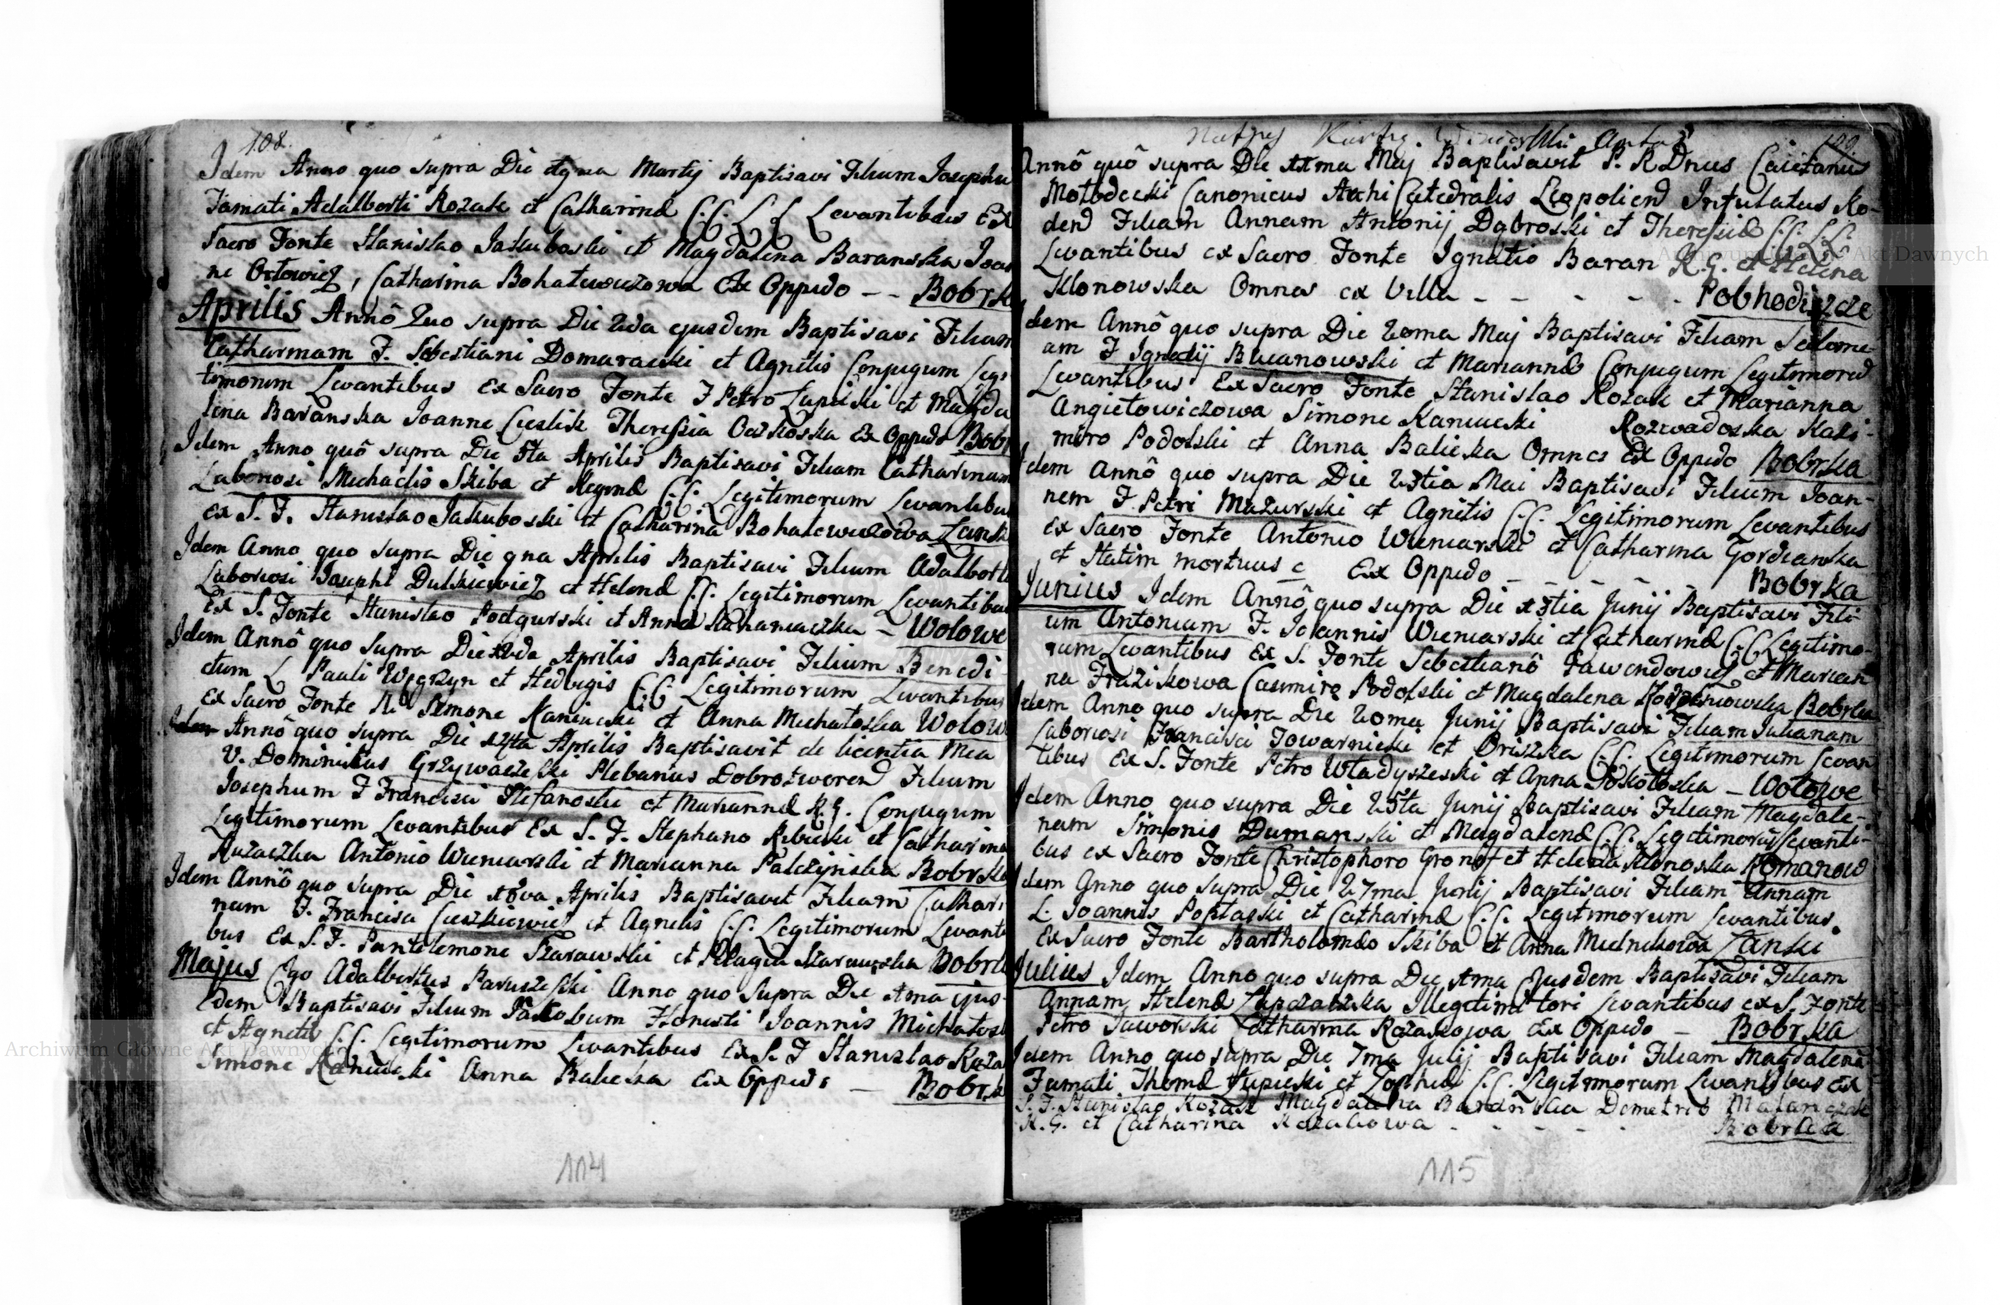 108.
Idem Anno quo supra Die Martij Baptisavi Filium Josephu
Famati Adalberti Kozak et Catharinæ C.C. L L Levantibus Ex
Sacro Fonte Stanislao Jakuboski et Magdalena Baranska Joan
ne Ortowicz, Catharina Bohatewiczowa Ex Oppido - - Bobrk
Aprilis Annô Quo supra Die 2da ejusdem Baptisavi Filiam
Catharinam F. Sebestiani Domaracki et Agnetis Conjugum Legi
timorum Levantibus Ex Sacro Fonte F Petro Łupicki et Magda
lena Baranska Joanne Cieslik Theressia Ex Oppido Bobr
Idem Anno quô supra Die 5ta Aprilis Baptisavi Filiam Catharinam
Laboriosi Michaelis Skiba et Reginæ C.C. Legitimorum Levantibu
Ex S. F. Stanislao Jakuboski et Catharina Bohatewiczowa Łansk
Idem Anno quo supra Die 9na Aprilis Baptisavi Filium Adalbertu
Laboriosi Josephi Dulkiewicz et Helenæ C.C. Legitimorum Levantibu
Ex S. Fonte Stanislao Podgurski et Anna - Wołowe
Idem Annô quo supra Die Aprilis Baptisavi Filium Benedi
ctum L Pauli Węgrzyn et Hedvigis C.C. Legitimorum Levantibus
Ex Sacro Fonte Simone Kaniucki et Anna Michałoska Wołow
Idem Annô quo supra Die 14ta Aprilis Baptisavit de licentia Mea
V. Dominikus Grzywaczeski Plebanus Dobrotworen Filium
Josephum F Francisci Stefanoski et Mariannæ R.G. Conjugum
Legitimorum Levantibus Ex S. F. Stephano Ribicki et Catharina
Antonio Wieniarski et Marianna Palczynska Bobrk
Idem Annô quo supra Die 18va Aprilis Baptisavit Filiam Cathari
nam F. Francisca Cieszkiewicz et Agnetis C.C. Legitimorum Levanti
bus Ex S. F. Pantelemone Starawski et Pelagia Starawska Bobrk
Majus Ego Adalbertus Paruszeski Anno quo Supra Die 1ma ejus
dem Baptisavi Filium Jakobum Honesti Joannis Michałosk
et Agnetis C.C. Legitimorum Levantibus Ex S. F Stanislao Koza
Simone Kaniucki Anna Balicka Ex Oppido - Bobrk
114
109
Annô quô supra Die Maj Baptisavit P. R Dnus Caietanus
Mołodecki Canonicus Archi Catedralis Leopolien Intulatus Ro-
den Filiam Annam Antonij Dąbroski et Theresiæ C.C. L.L.
Levantibus ex Sacro Fonte Ignatio Baran R.G. et Helena
Klonowska Omnes ex Villa - - - - Podhodiszcze
Idem Annô quo supra Die 20ma Maj Baptisavi Filiam Salome-
am F Ignatij Bucanowski et Mariannæ Conjugum Legitimorum
Levantibus Ex Sacro Fonte Stanislao Kozak et Marianna
Angiełowiczowa Simone Kaniucki Rozwadoska Kasi-
miro Podolski et Anna Balicka Omnes Ex Oppido Bobrka
Idem Annô quo supra Die 23tia Mai Baptisavi Filium Joan-
nem F. Petri Mazurski et Agnetis C.C. Legitimorum Levantibus
Ex Sacro Fonte Antonio Wieniarski et Catharina Gordianska
et Statim mortuus e Ex Oppido - - - - Bobrka
Junius Idem Annô quo supra Die 13tia Junij Baptisavi Fili-
um Antonium F. Joannis Wieniarski et Catharinæ C.C. Legitimo-
rum Levantibus Ex S. Fonte Sebestianô Lawendowicz et Marian
na Frazikowa Casimiro Podolski et Magdalena Bobrka
Idem Anno quo supra Die 20ma Junij Baptisavi Filiam Julianam
Laboriosi Francisci Towarnicki et Oriszka C.C. Legitimorum Levan
tibus Ex S. Fonte Petro Władyszeski et Anna Sokołoska - Wołowe
Idem Anno quo supra Die 25ta Junij Baptisavi Filiam Magdale-
nam Simonis Dumanski et Magdalenæ C.C. Legitimorum Levanti-
bus ex Sacro Fonte Christophoro Gronof et Helena Klonoska Romanow
Idem Anno quo supra Die 27ma Junij Baptisavi Filiam Annam
L. Joannis Poptaski et Catharinæ C.C. Legitimorum Levantibus
Ex Sacro Fonte Bartholomeo Skiba et Anna Mielnikowa Łanski
Julius Idem Anno quo supra Die 1ma Ejusdem Baptisavi Filiam
Annam Helenæ Illegitimi tori Levantibus ex S. Fonte
Petro Jaworski Catharina Kozakowa Ex Oppido - Bobrka
Idem Anno quo supra Die 7ma Julij Baptisavi Filiam Magdalena
Famati Thomæ Łupicki et Zophiæ C.C. Legitimorum Levantibus ex
S. F. Stanislao Kozak Magdalena Baranska Demetrio
R.G. et Catharina Kozakowa - - - - Bobrka
115
Archiwum Główne Akt Dawnych
Archiwum Główne Akt Dawnych